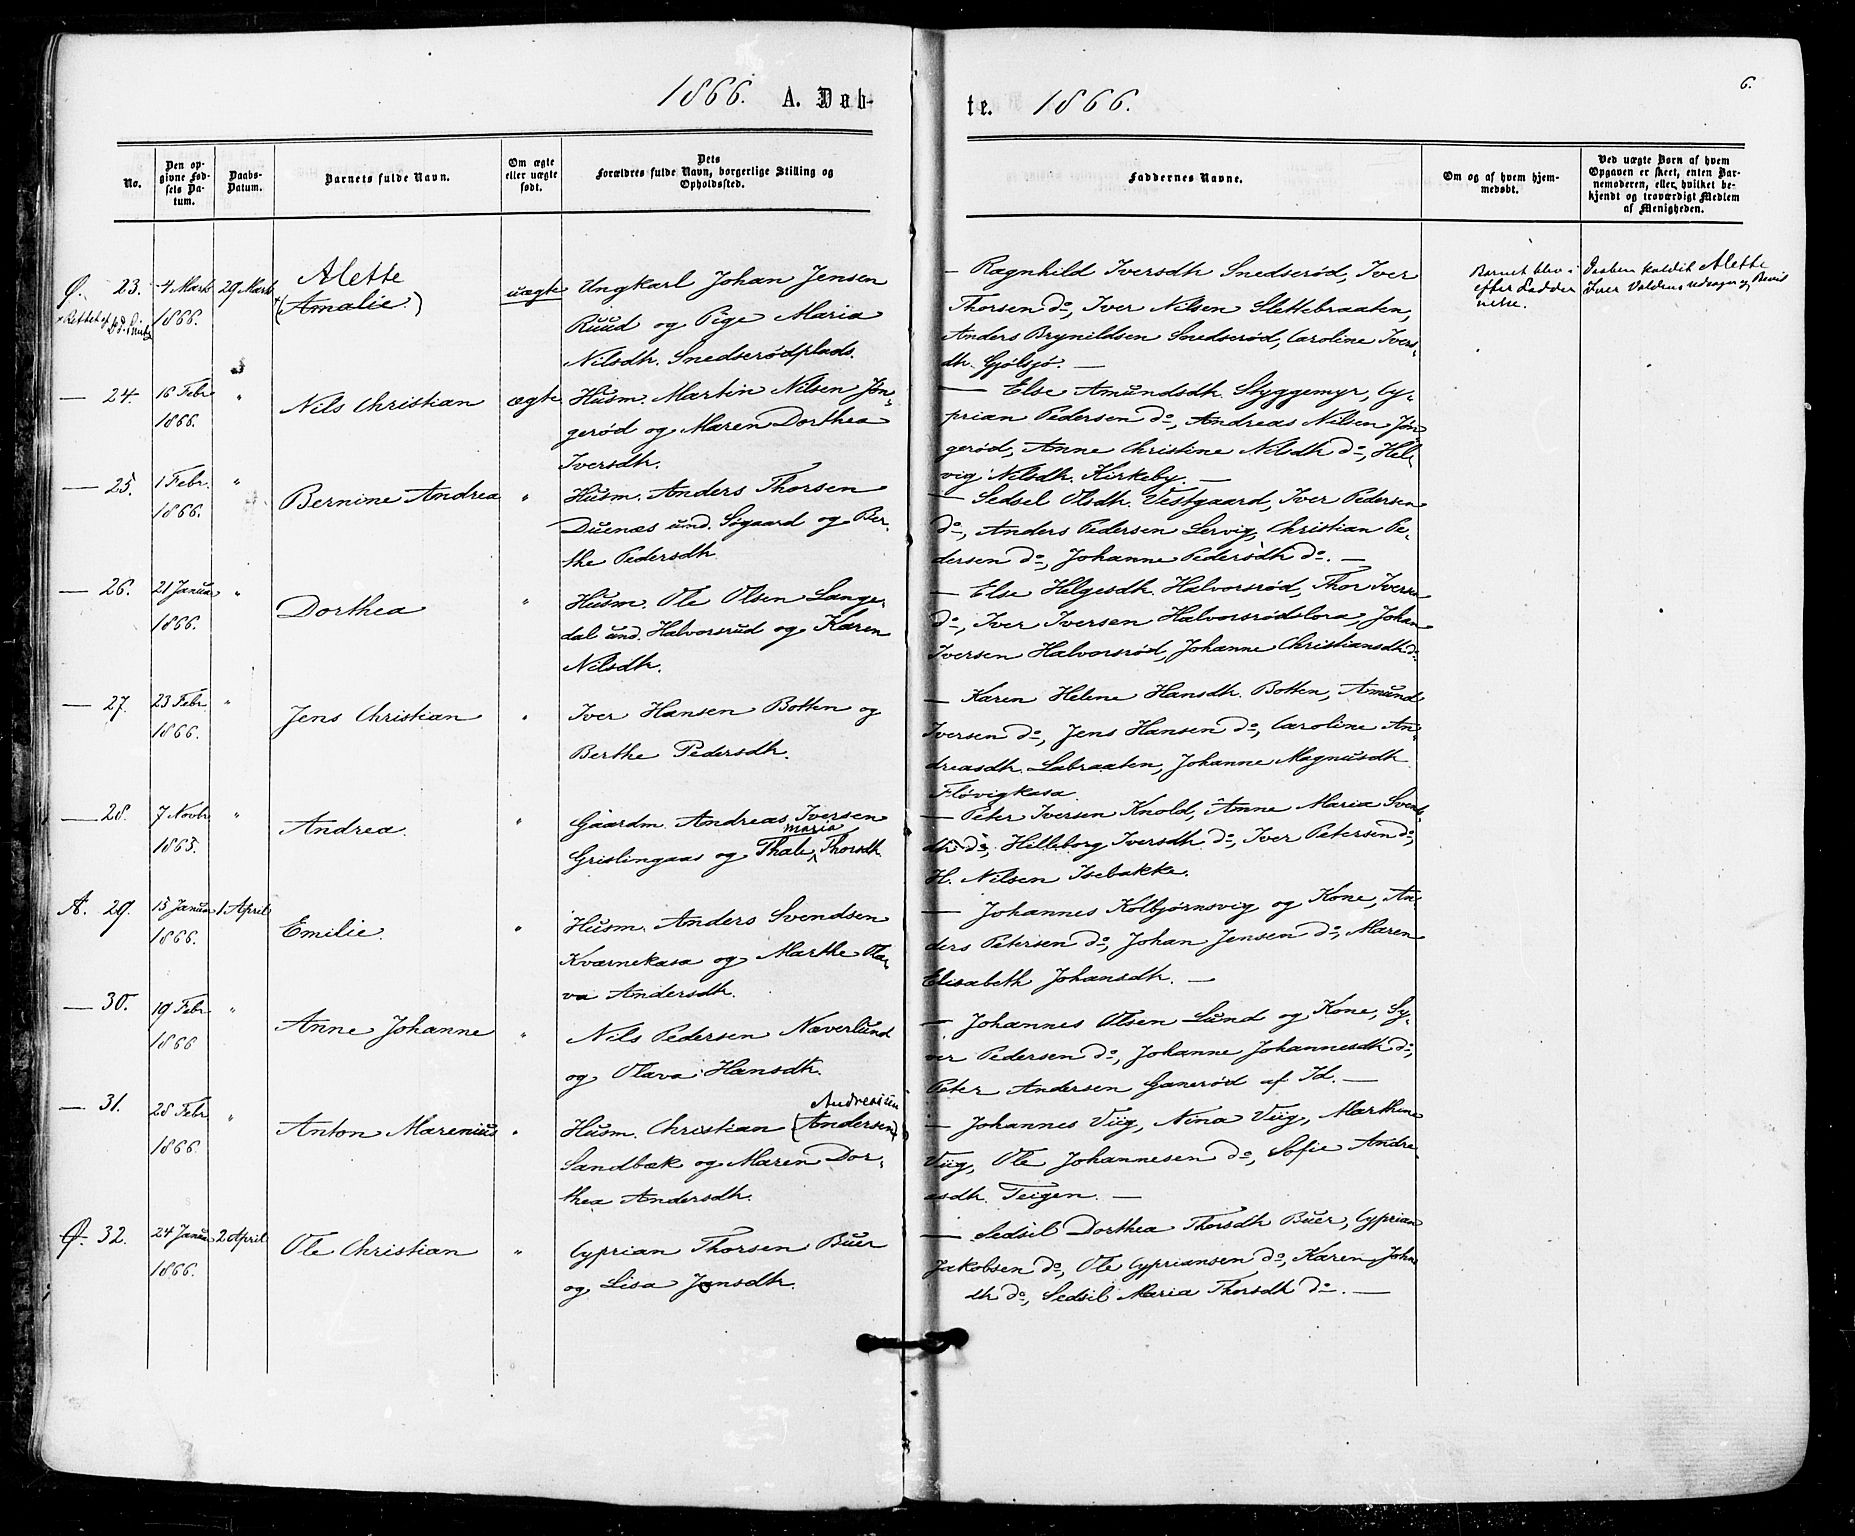 6.
1866. A. Døb-
te. 1866.
No.
Den op-
givne Fød-
sels Da-
tum.
Daabs-
Datum.
Barnets fulde Navn.
Om ægte
eller uægte
født.
Dets
Forældres fulde Navn, borgerlige Stilling og
Opholdssted.
Faddernes Navne.
Om og af hvem hjem-
medøbt.
Ved uægte Børn af hvem
Opgaven er skeet, enten Bar-
nemoderen, eller, hvilket be-
kjendt og troværdigt Medlem
af Menigheden.
Ø. 23. 4 Marts 29 Marts Alette uægte Ungkarl Johan Jensen
1866. (Amalie)
× Rettet af
Ruud og Pige Maria
Nilsdh. Snedserødplads.
— Ragnhild Iversdh Snedserød, Iver
Thorsen do, Iver Nilsen Slettebraaten,
Anders Brynildsen Snedserød, Caroline Ivers-
dh. Gjølsjø. —
Barnet blev i
efter Fadder
Daaben kaldet Alette
— 24. 16 Febr. " Nils Christian ægte Husm. Martin Nilsen Jon-
1866. gerød og Maren Dorthea
Iversdh.
— Else Amundsdh. Styggemyr, Cy-
prian Pedersen do, Andreas Nilsen Jon-
gerød, Anne Christine Nilsdh do, Hel-
vig Nilsdh. Kirkeby. —
— 25. 1 Febr. " Bernine Andrea " Husm. Anders Thorsen
1866. Duenæs und. Søgaard og Ber-
the Pedersdh
— Sedsel Olsdh. Vestgaard, Iver Pedersen
do, Anders Pedersen Lervig, Christian Pe-
dersen do, Johanne Pedersdh do. —
— 26. 21 Januar " Dorthea " Husm. Ole Olsen Lange-
1866. dal und. Halvorsrud og Karen
Nilsdh.
— Else Helgesdh. Halvorsrød, Thor Iversen
do, Iver Iversen Halvorsrødslora, Johan
Iversen Halvorsrød, Johanne Christiansdh do
— 27. 23 Febr " Jens Christian " Iver Hansen Botten og
1866. Berthe Pedersdh.
— Karen Helene Hansdh. Botten, Amund
Iversen do, Jens Hansen do, Caroline An-
dreasdh. Labraaten, Johanne Magnusdh
Fløvigkasa
— 28. 7 Novbr " Andrea. " Gaardm. Andreas Iversen
1865. Maria
Grislingaas og Thale Thorsdh
— Peter Iversen Knold, Anne Maria Svends-
dh do, Hilleborg Iversdh do, Iver Petersen do,
H. Nilsen Isebakke.
A. 29. 15 Januar 1 April Emilie. " Husm. Anders Svendsen
1866. Kværnekasa og Marthe Ola-
va Andersdh.
— Johannes Kolbjørnsvig og Kone, An-
ders Petersen do, Johan Jensen do, Maren
Elisabeth Johansdh. —
— 30. 19 Febr " Anne Johanne " Nils Pedersen Næverlund
1866 og Olava Hansdh.
— Johannes Olsen Lund og Kone, Sy-
ver Pedersen do, Johanne Johannesdh do,
Peter Andersen Ganerød af Id. —
— 31. 28 Febr " Anton Marenius " Husm. Christian (Andersen)
1866. Sandbæk og Maren Dor-
thea Andersdh.
— Johannes Viig, Nina Viig, Marthine
Viig, Ole Johannesen do, Sofie Andre-
asdh. Teigen. —
Ø. 32. 24 Januar 2 April Ole Christian " Cyprian Thorsen Buer
1866. og Lisa Jonsdh.
— Sedsil Dorthea Thorsdh Buer, Cyprian
Jakobsen do, Ole Cypriansen do, Karen Johns
dh do, Sedsil Maria Thorsdh do. —